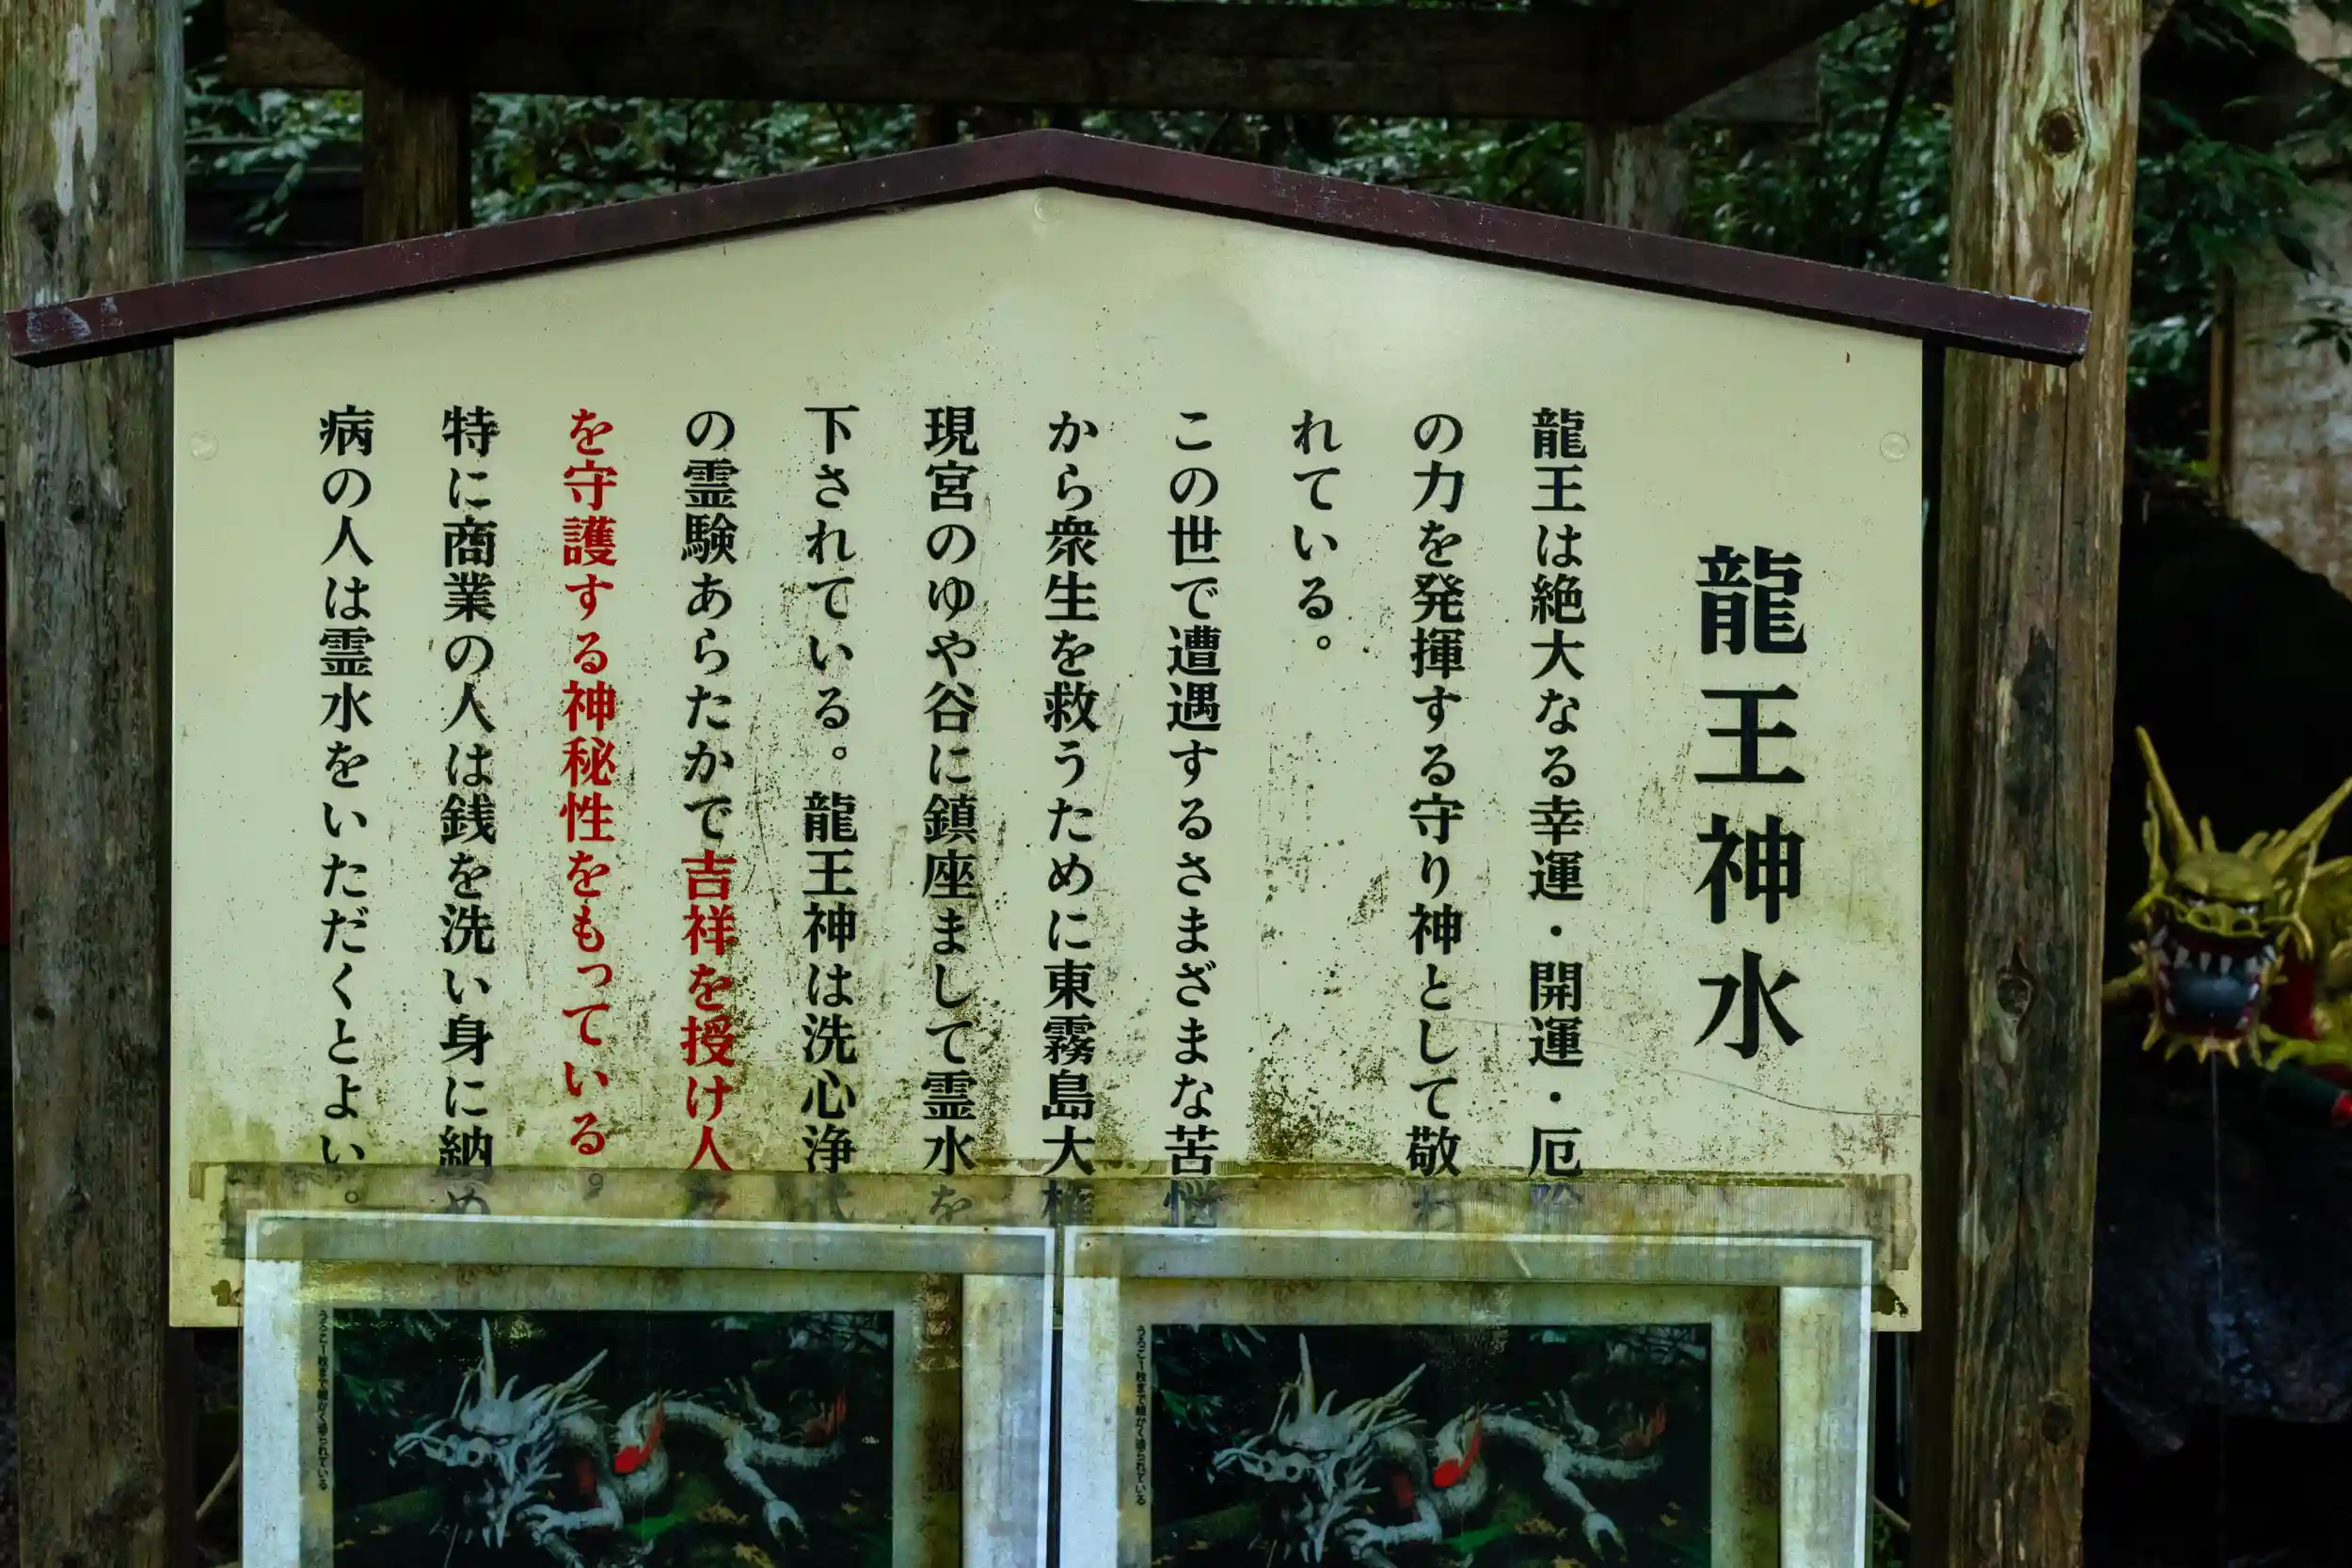 龍王神水
龍王は絶大なる幸運・開運・厄除
の力を発揮する守り神として敬わ
れている。
この世で遭遇するさまざまな苦悩
から衆生を救うために東霧島大権
現宮のゆや谷に鎮座まして霊水を
下されている。龍王神は洗心浄
の霊験あらたかで吉祥を授け人々
を守護する神秘性をもっている。
特に商業の人は銭を洗い身に納め
病の人は霊水をいただくとよい。
うろこ一枚まで細かく塗られている
うろこ一枚まで細かく塗られている